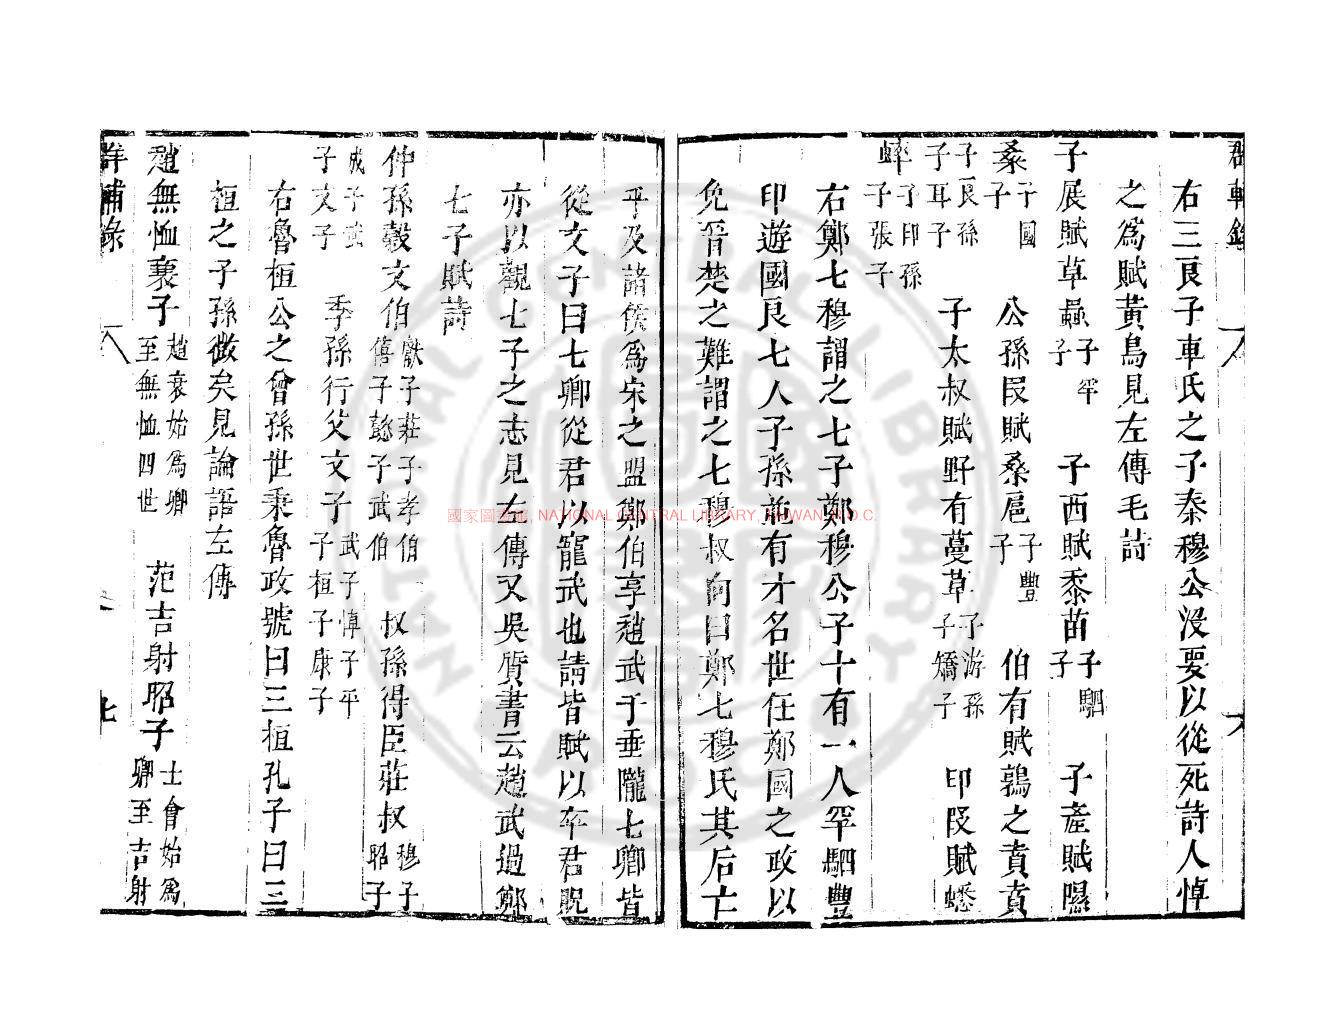 右三良子車氏之子秦穆公没要以從死詩人悼
之爲賦黃鳥見左傳毛詩
子展賦草蟲子罕子 子西賦黍苗子駟子 子產賦隰
桑子國子 公孫段賦桑扈子豐子 伯有賦鶉之賁賁
子良孫子耳子 子太叔賦野有蔓草子游孫子矯子 印段賦蟋
蟀子印孫子張子
右鄭七穆謂之七子鄭穆公子十有一人罕駟豐
印遊國良七人子孫並有才名世任鄭國之政以
免晉楚之難謂之七穆叔向曰鄭七穆氏其后亡
乎及諸侯爲宋之盟鄭伯享趙武于垂隴七卿皆
從文子曰七卿從君以寵武也請皆賦以卒君貺
亦以觀七子之志見左傳又吳質書云趙武過鄭
七子賦詩
仲孫穀文伯獻子莊子孝伯僖子懿子武伯 叔孫得臣莊叔穆子昭子
成子武子文子 季孫行父文子武子悼子平子桓子康子
右魯桓公之曾孫世秉魯政號曰三桓孔子曰三
桓之子孫微矣見論語左傳
趙無恤襄子趙衰始爲卿至無恤四世 范吉射昭子士會始爲卿至吉射
羣輔錄 七
國家圖書館, NATIONAL CENTRAL LIBRARY, TAIWAN, R.O.C.